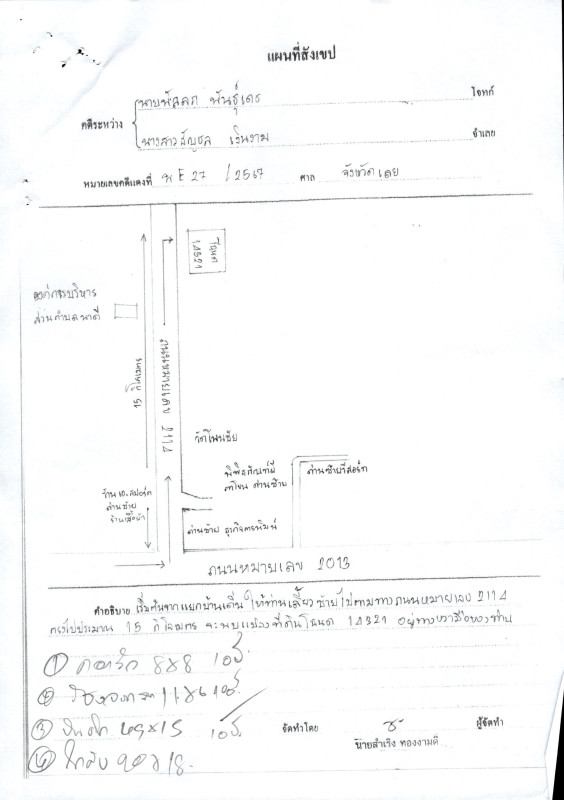 แผนที่สังเขป
คดีระหว่าง
นายพัลลภ พันธุ์เดช โจทก์
นางสาวธัญชล เงินงาม จำเลย
หมายเลขคดีแดงที่ ผ E 27 / 2567 ศาล จังหวัดเลย
โฉนด
14321
องค์การบริหาร
ส่วนตำบลนาดี
15 กิโลเมตร
ถนนหมายเลข 2114
วัดโพนชัย
พิพิธภัณฑ์ผี
ตาโขน ด่านซ้าย
ด่านซ้ายรีสอร์ท
ร้าน
ด่านซ้าย
ด่านซ้าย ธุรกิจการพิมพ์
ถนนหมายเลข 2013
คำอธิบาย เริ่มต้นจากแยกบ้านเดิ่น ให้ท่านเลี้ยวซ้ายไปตามทางถนนหมายเลข 2114
ตรงไปประมาณ 15 กิโลเมตร จะพบแปลงที่ดินโฉนด 14321 อยู่ทางขวามือของท่าน
① 8x8 10ปี
② 10ปี
③ 10ปี
จัดทำโดย ผู้จัดทำ
④
นายสำเริง ทองงามดี